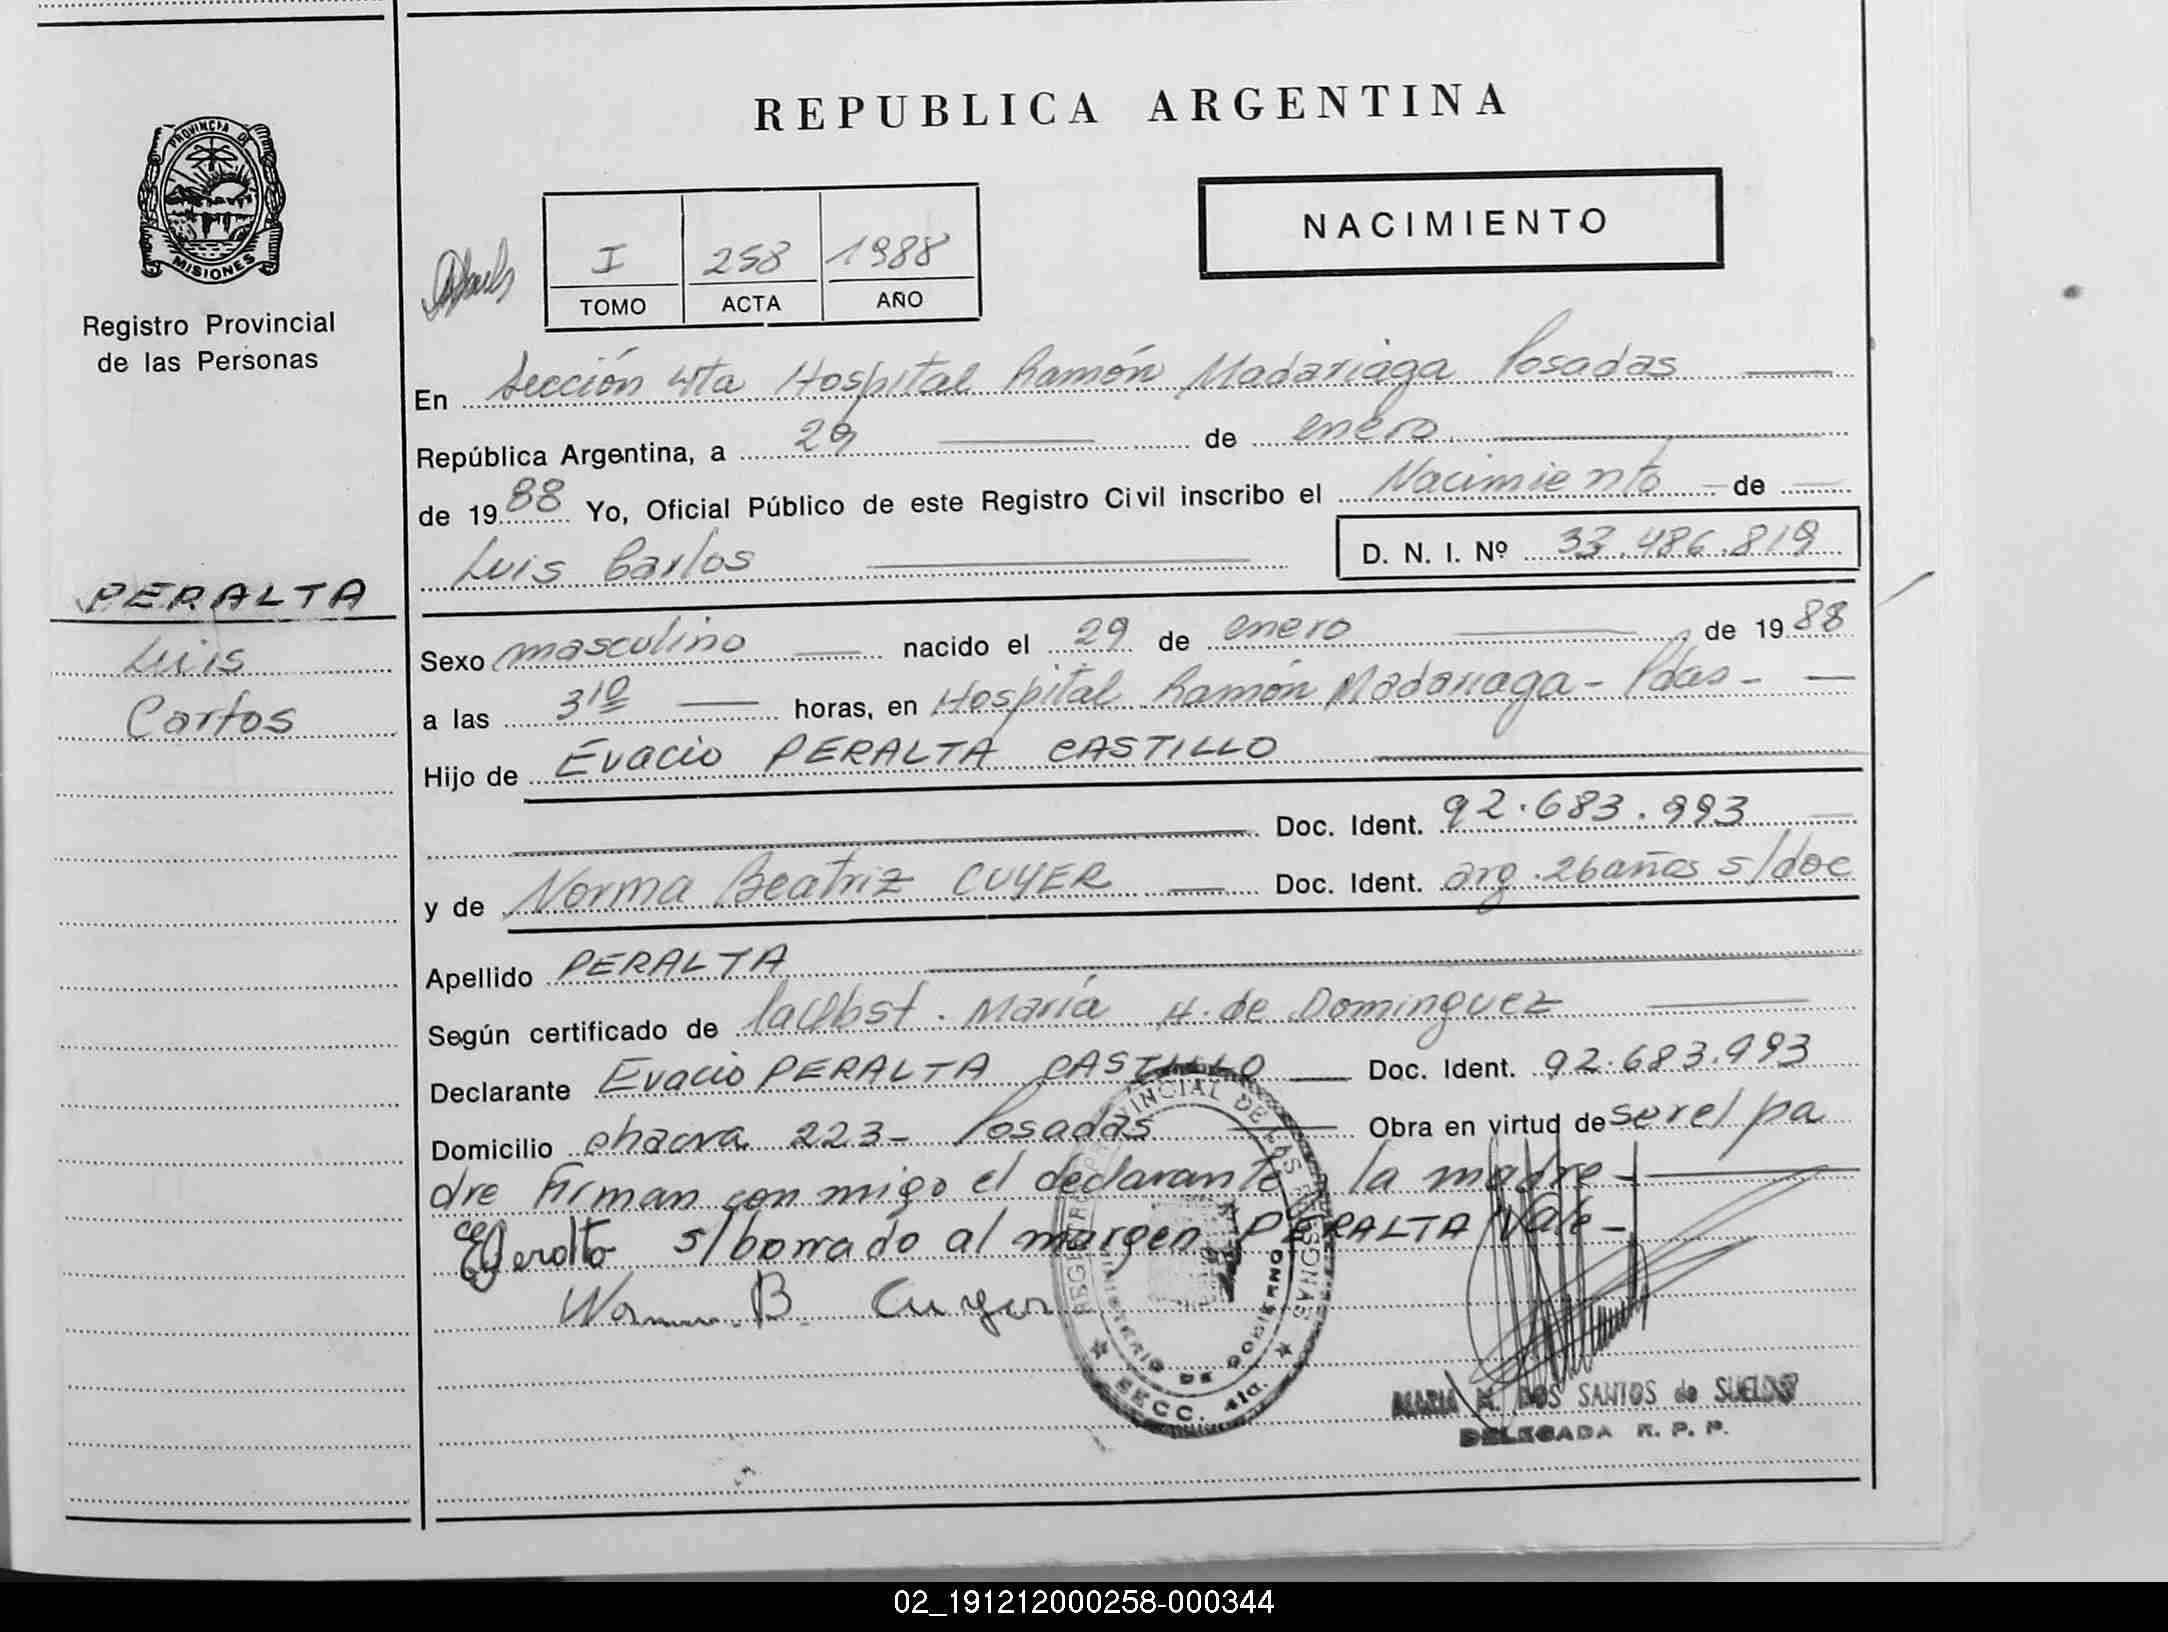 REPUBLICA ARGENTINA
PROVINCIA DE
MISIONES
Registro Provincial
de las Personas
I 258 1988
TOMO ACTA AÑO
NACIMIENTO
En Sección 4ta Hospital Ramón Madariaga Posadas
República Argentina, a 29 de enero
de 1988 Yo, Oficial Público de este Registro Civil inscribo el Nacimiento de
Luis Carlos D. N. I. Nº 33.486.819
PERALTA
Luis
Carlos
Sexo masculino nacido el 29 de enero de 1988
a las 3 10 horas, en Hospital Ramón Madariaga - Pdas -
Hijo de Evacio PERALTA CASTILLO
Doc. Ident. 92.683.993
y de Norma Beatriz CUYER Doc. Ident. arg. 26 años s/doc
Apellido PERALTA
Según certificado de la Obst. María H. de Dominguez
Declarante Evacio PERALTA CASTILLO Doc. Ident. 92.683.993
Domicilio chacra 223 - Posadas Obra en virtud de ser el pa
dre firman con migo el declarante y la madre -
s/borrado al margen PERALTA Vale -
Norma B. Cuyer
REGISTRO PROVINCIAL DE LAS PERSONAS
MINISTERIO DE GOBIERNO
SECC. 4ta.
MARIA M. DOS SANTOS de SUELDO
DELEGADA R. P. P.
02_191212000258-000344